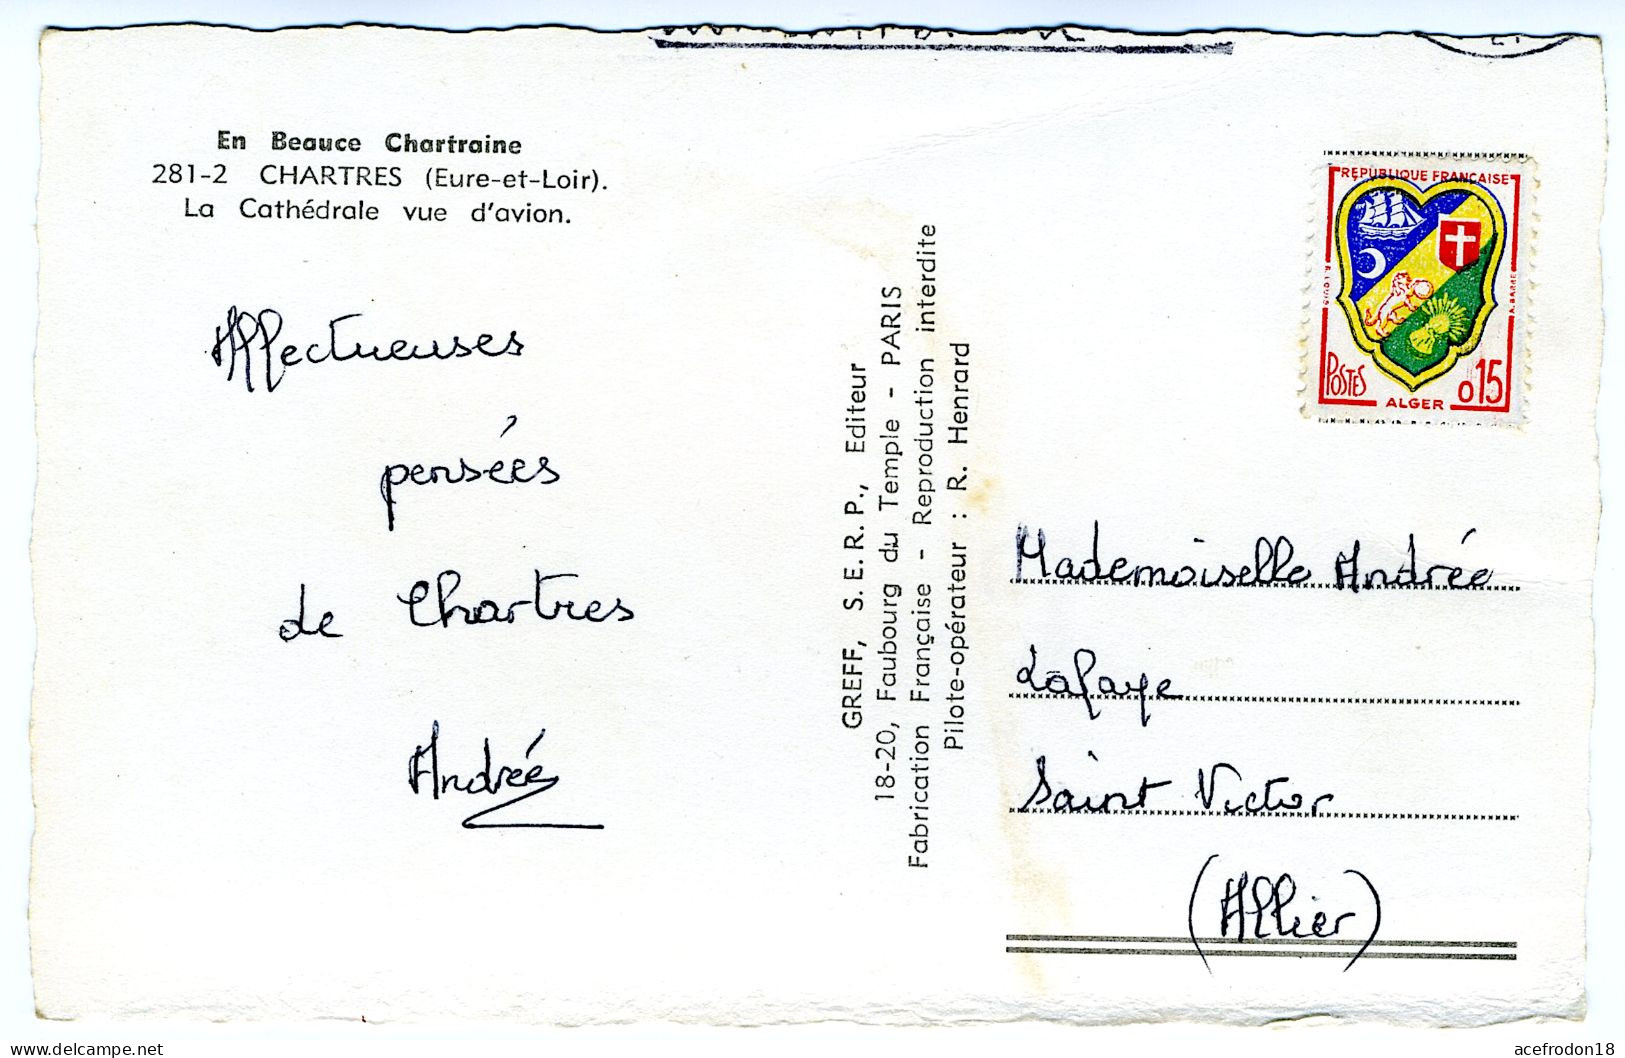 En Beauce Chartraine
281-2 CHARTRES (Eure-et-Loir).
La Cathédrale vue d'avion.
Affectueuses
pensées
de Chartres
Andrée
GREFF, S.E.R.P., Editeur
18-20, Faubourg du Temple - PARIS
Fabrication Française - Reproduction interdite
Pilote-opérateur : R. Henrard
REPUBLIQUE FRANÇAISE
POSTES
0,15
ALGER
Mademoiselle Andrée
Lafaye
Saint Victor
(Allier)
delcampe.net
acefrodon18